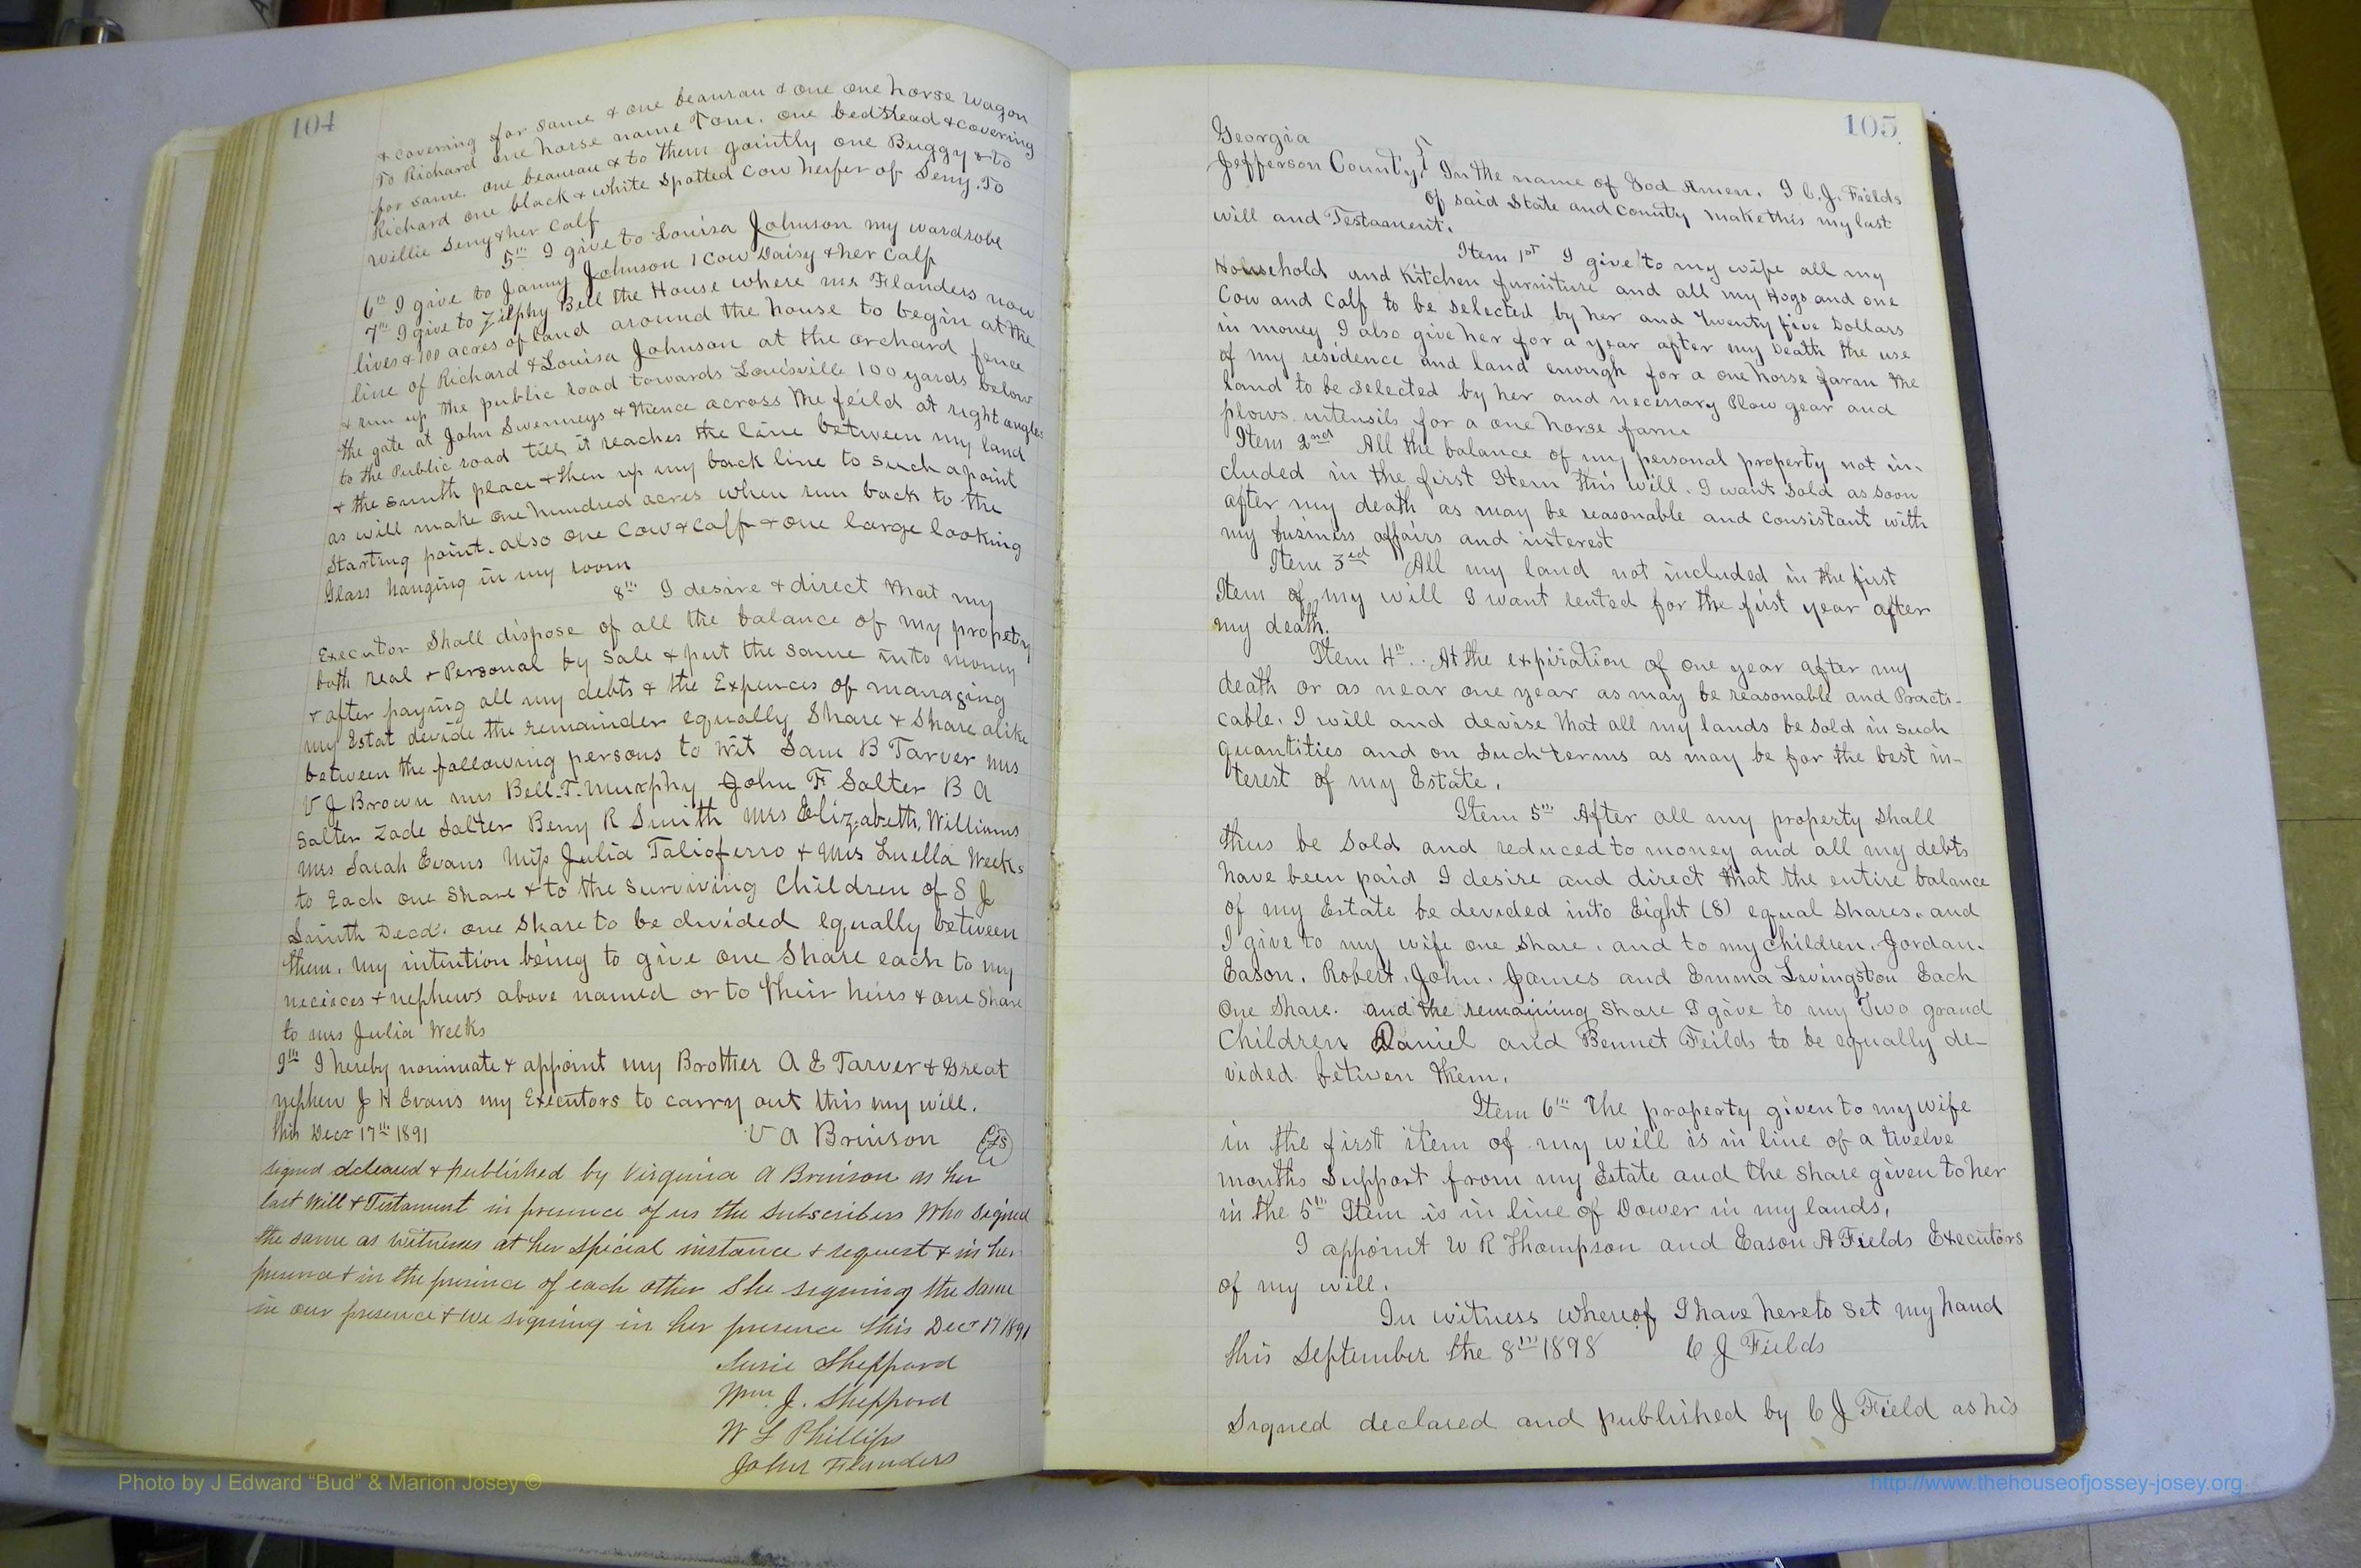 104
& covering for same & one beaurau & one one horse wagon
To Richard one horse name Tom. one bedstead & covering
for same. one beaurau & to them jointly one Buggy & to
Richard one black & white spotted cow heifer of Seny. To
Willie Seny & her Calf
5th I give to Louisa Johnson my wardrobe
6th I give to Janny Johnson 1 Cow Daisy & her Calf
7th I give to Zilphy Bell the House where mr Flanders now
lives & 100 acres of land around the house to begin at the
line of Richard & Louisa Johnson at the orchard fence
& run up the public road towards Louisville 100 yards below
the gate at John Swenneys & thence across the feild at right angles
to the Public road till it reaches the line between my land
& the Smith place & then up my back line to such a point
as will make one hundred acres when run back to the
Starting point. also one Cow & Calf & one large looking
Glass hanging in my room
8th I desire & direct that my
Executor Shall dispose of all the balance of my propetry
both real & Personal by sale & put the same into money
& after paying all my debts & the Expences of managing
my Estat devide the remainder equally Share & Share alike
between the following persons to wit Sam B Tarver mrs
V J Brown mrs Bell. T. Murphy John F Salter B A
Salter Zade Salter Beny R Smith Mrs Elizabeth, Williams
Mrs Sarah Evans Miss Julia Talioferro & Mrs Luella Weeks
to Each one share & to the surviving Children of S J
Smith Decd. one share to be divided equally between
them. my intention being to give one Share each to my
neciices & nephews above named or to their heirs & one share
to mrs Julia Weeks
9th I hereby nominate & appoint my Brother A E Tarver & Great
nephew J H Evans my Executors to carry out this my will.
this Decr 17th 1891 V A Brinson (LS)
signed declared & published by Virginia A Brinson as her
last Will & Testament in presence of us the subscribers who signed
the same as witnesses at her special instance & request & in her
presence & in the presence of each other She signing the same
in our presence & we signing in her presence this Decr 17 1891
Susie Sheppard
Wm. J. Sheppard
W L Phillips
John Flanders
105
Georgia
Jefferson County In the name of God Amen. I C. J. Fields
of said State and county make this my last
will and Testament.
Item 1st I give to my wife all my
Household and Kitchen furniture and all my Hogs and one
Cow and Calf to be selected by her and Twenty five Dollars
in money I also give her for a year after my Death the use
of my residence and land enough for a one horse farm the
land to be selected by her and necessary Plow gear and
plows. intensils for a one horse farm
Item 2nd All the balance of my personal property not in-
cluded in the first Item this will. I want sold as soon
after my death as may be reasonable and consistant with
my business affairs and interest
Item 3ed All my land not included in the first
Item of my will I want rented for the first year after
my death.
Item 4th. At the expiration of one year after my
death or as near one year as may be reasonable and Practi-
cable. I will and devise that all my lands be sold in such
quantities and on such terms as may be for the best in-
terest of my Estate.
Item 5th After all my property shall
thus be sold and reduced to money and all my debts
have been paid I desire and direct that the entire balance
of my Estate be devided into Eight (8) equal shares. and
I give to my wife one share. and to my children. Jordan.
Eason. Robert. John. James and Emma Livingston Each
one share. and the remaining share I give to my Two grand
Children Daniel and Bennet Feilds to be equally de-
vided between them.
Item 6th The property given to my wife
in the first item of my will is in line of a twelve
months support from my Estate and the share given to her
in the 5th Item is in line of Dower in my lands.
I appoint W R Thompson and Eason A Fields Executors
of my will.
In witness whereof I have hereto set my hand
this September the 8th 1898 C J Fields
Signed declared and published by C J Field as his
Photo by J Edward “Bud” & Marion Josey ©
http://www.thehouseofjossey-josey.org